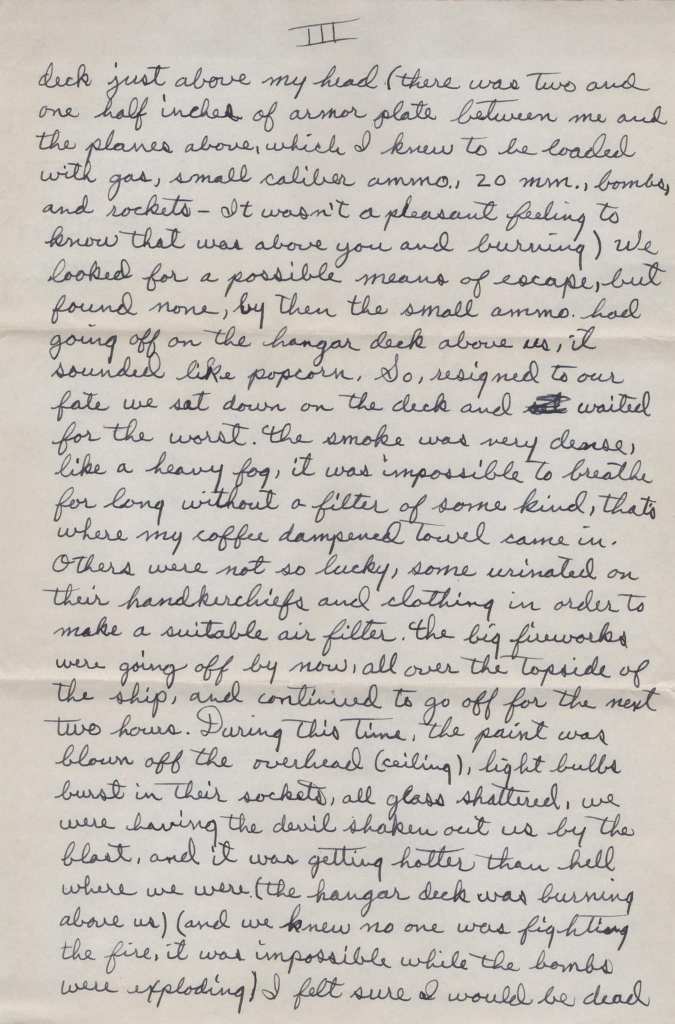 III
deck just above my head (there was two and
one half inches of armor plate between me and
the planes above, which I knew to be loaded
with gas, small caliber ammo., 20 mm., bombs,
and rockets – It wasn't a pleasant feeling to
know that was above you and burning) We
looked for a possible means of escape, but
found none, by then the small ammo. had
going off on the hangar deck above us, it
sounded like popcorn. So, resigned to our
fate we sat down on the deck and waited
for the worst. The smoke was very dense,
like a heavy fog, it was impossible to breathe
for long without a filter of some kind, thats
where my coffee dampened towel came in.
Others were not so lucky, some urinated on
their handkerchiefs and clothing in order to
make a suitable air filter. The big fireworks
were going off by now, all over the topside of
the ship, and continued to go off for the next
two hours. During this time, the paint was
blown off the overhead (ceiling), light bulbs
burst in their sockets, all glass shattered, we
were having the devil shaken out us by the
blast, and it was getting hotter than hell
where we were. (the hangar deck was burning
above us) (and we knew no one was fighting
the fire, it was impossible while the bombs
were exploding) I felt sure I would be dead